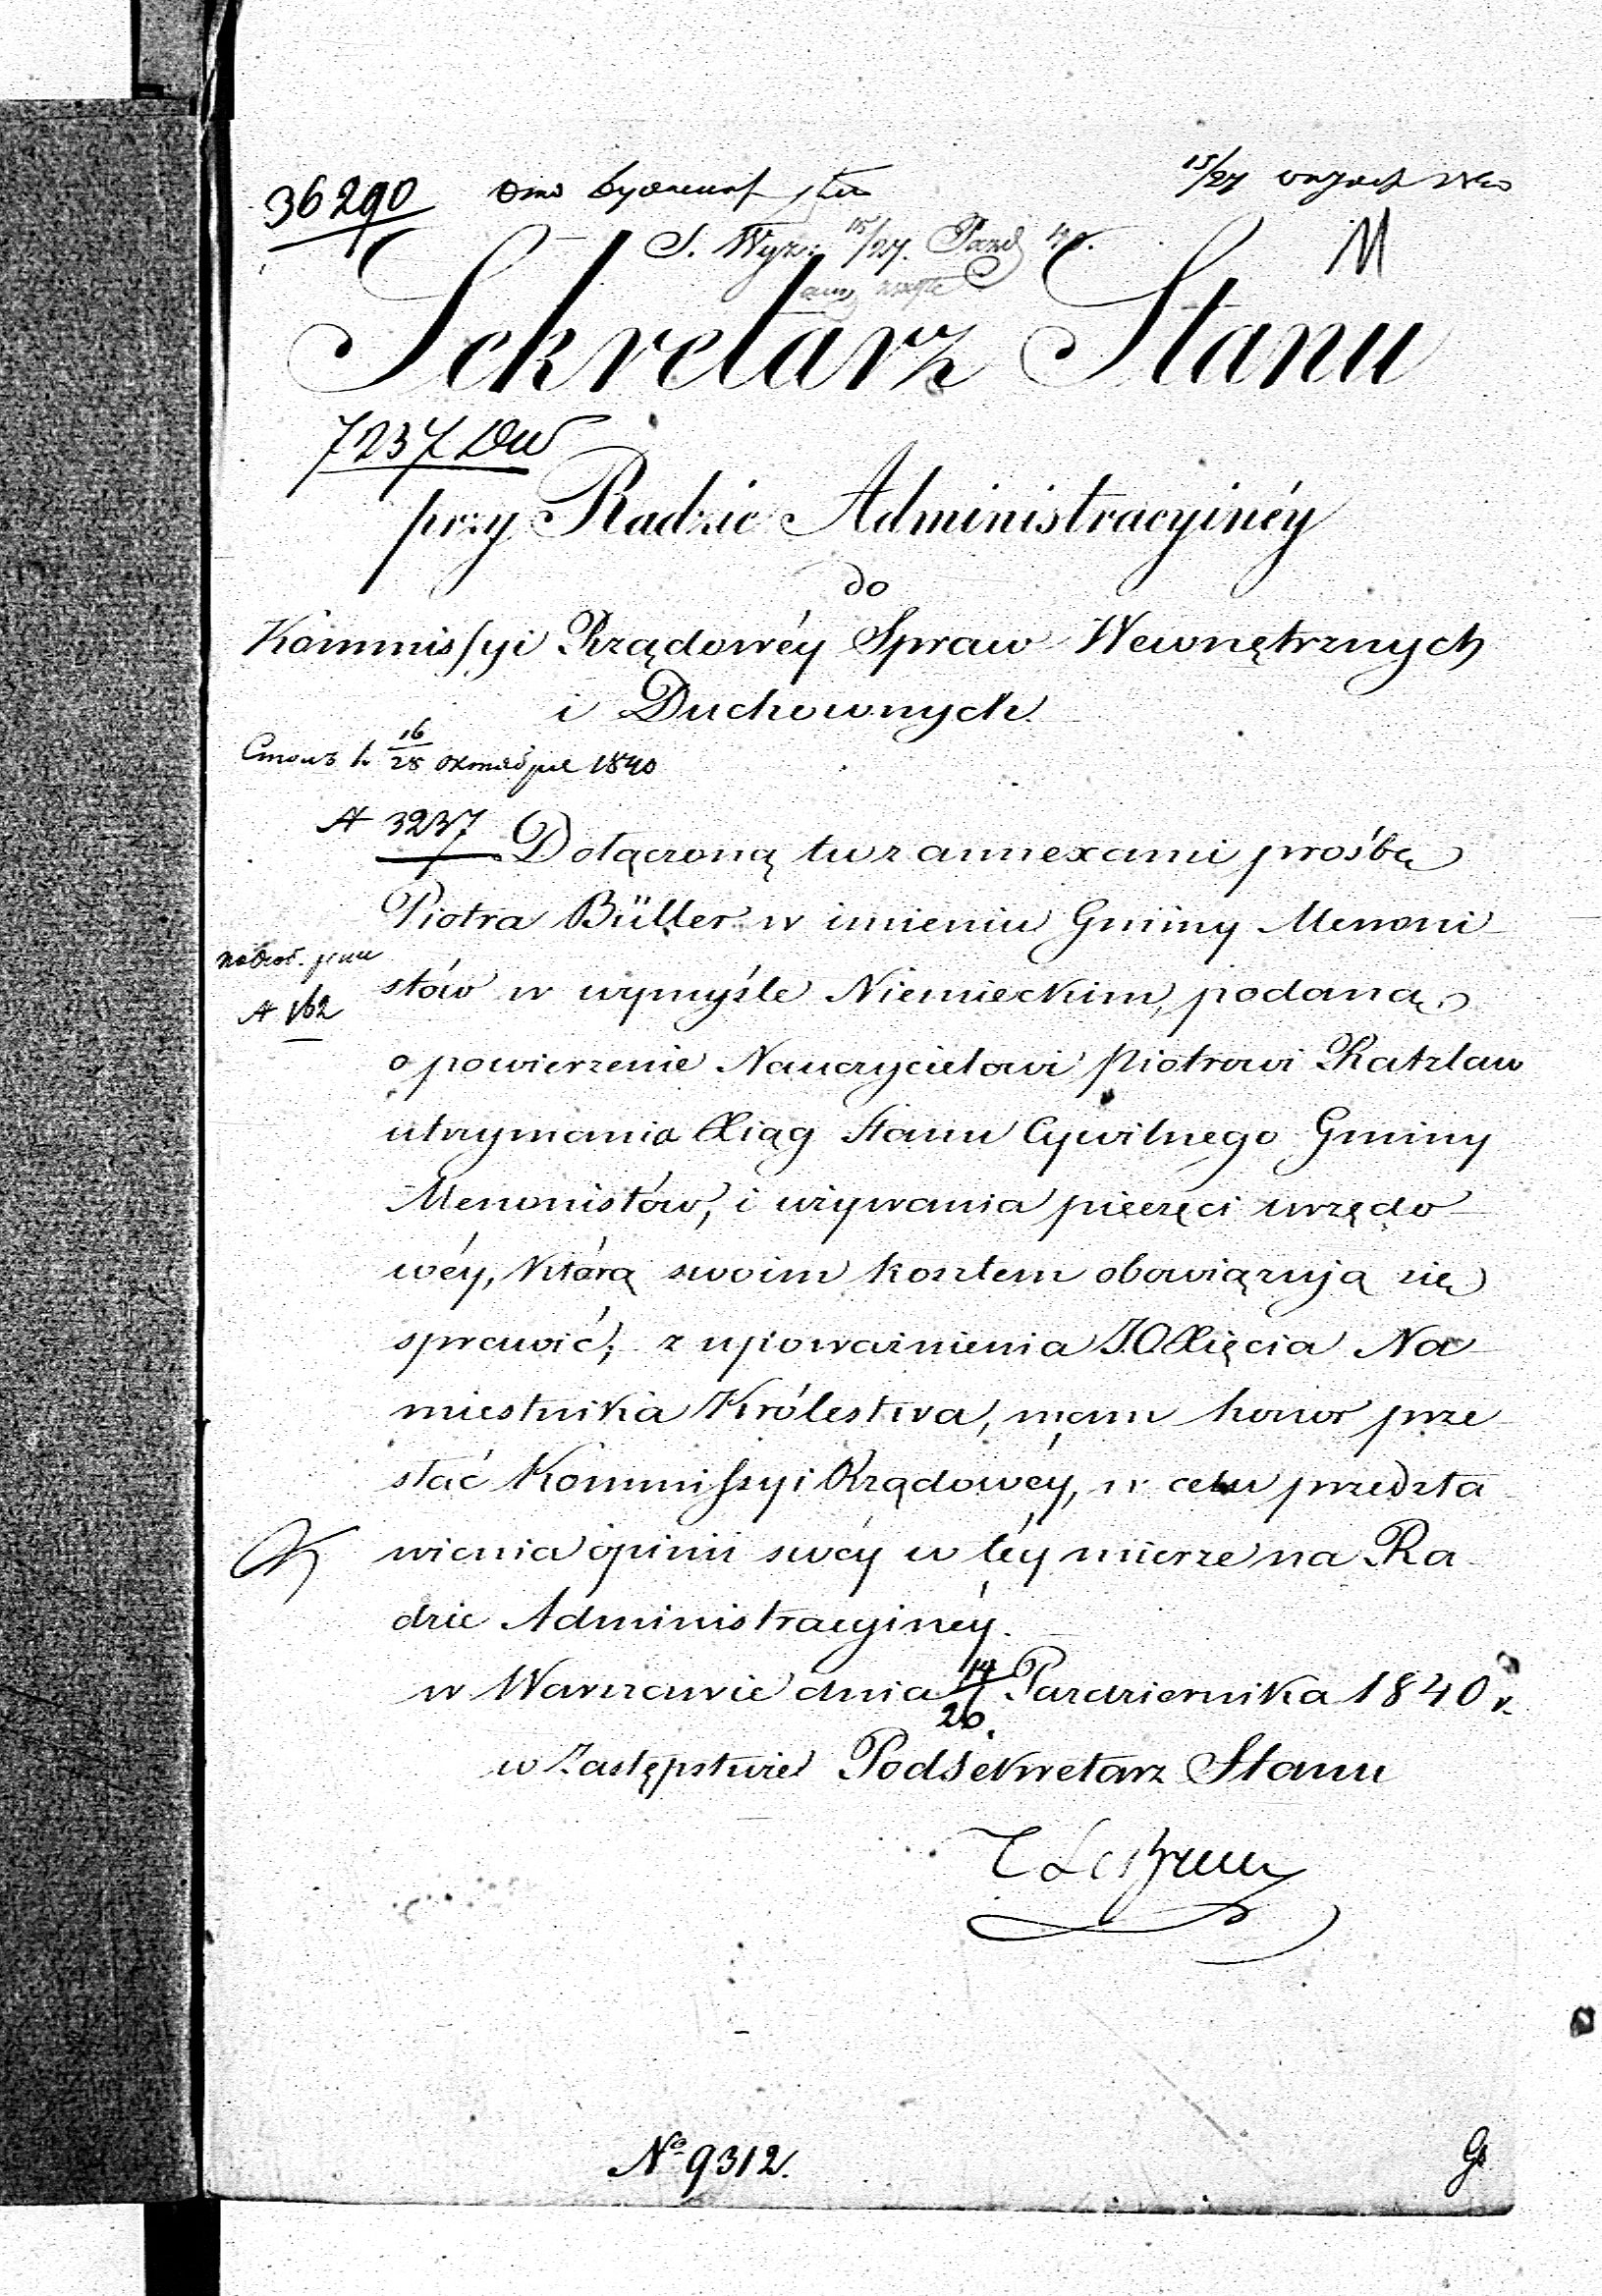 36290
15/27
S. Wyz: 15/27. Pazd 40.
M
Sekretarz Stanu
7237 DW
przy Radzie Administracyinéy
do
Kommissyi Rządowéy Spraw Wewnętrznych
i Duchownych.
16/28 октября 1840
№ 3237
Dołączoną tu z annexami prośbę
Piotra Büller w imieniu Gminy Menoni
stów w wymyśle Niemieckim, podaną,
o powierzenie Nauczycielowi Piotrowi Ratzlaw
utrzymania Xiąg Stanu Cywilnego Gminy
Menonistów, i używania pieczęci urzędo
wéy, którą swoim kosztem obowiązują się
sprawić; z upoważnienia J.O Xięcia Na
miestnika Królestwa, mam honor prze
słać Kommissyi Rządowéy, w celu przedsta
wienia opinii swéy w téy mierze na Ra
dzie Administracyinéy.
№ 162
w Warszawie dnia 14/26 Pazdziernika 1840 r.
w Zastępstwie Podsekretarz Stanu
No 9312.